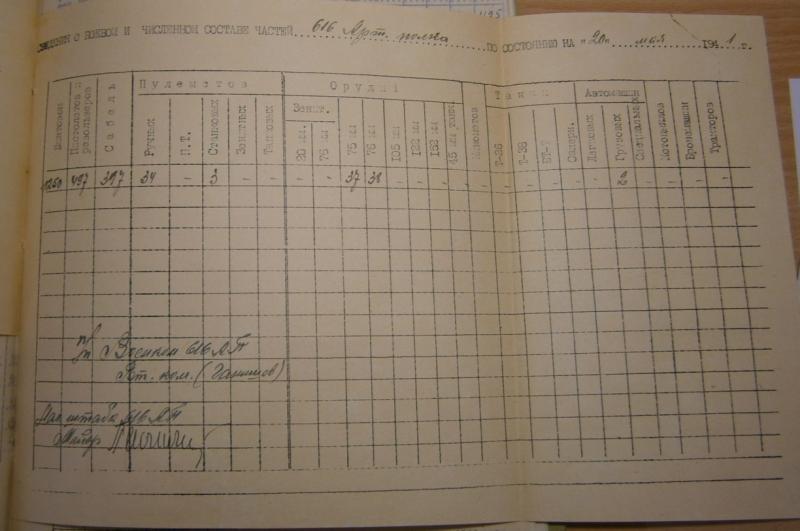 СВЕДЕНИЯ О БОЕВОМ И ЧИСЛЕННОМ СОСТАВЕ ЧАСТЕЙ 616 Арт. полка ПО СОСТОЯНИЮ НА "20" мая 1941 г.
Пулеметов Орудий Танки Автомашин
Зенит.
Винтовки Пистолетов и револьверов Сабель Ручных П.Т. Станковых Зенитных Танковых 20 мм 76 мм 75 мм 76 мм 105 мм 122 мм 152 мм 45 мм танк. Минометов Т-26 Т-38 БТ-7 Легковых Грузовых Специальных Мотоциклов Бронемашин Тракторов
1250 497 397 34 - 3 - - - - 37 38 - - - - - - - - - - 2 - - - -
п/п Военком 616 АП
ст. ком.
Нач штаба 616 АП
Майор